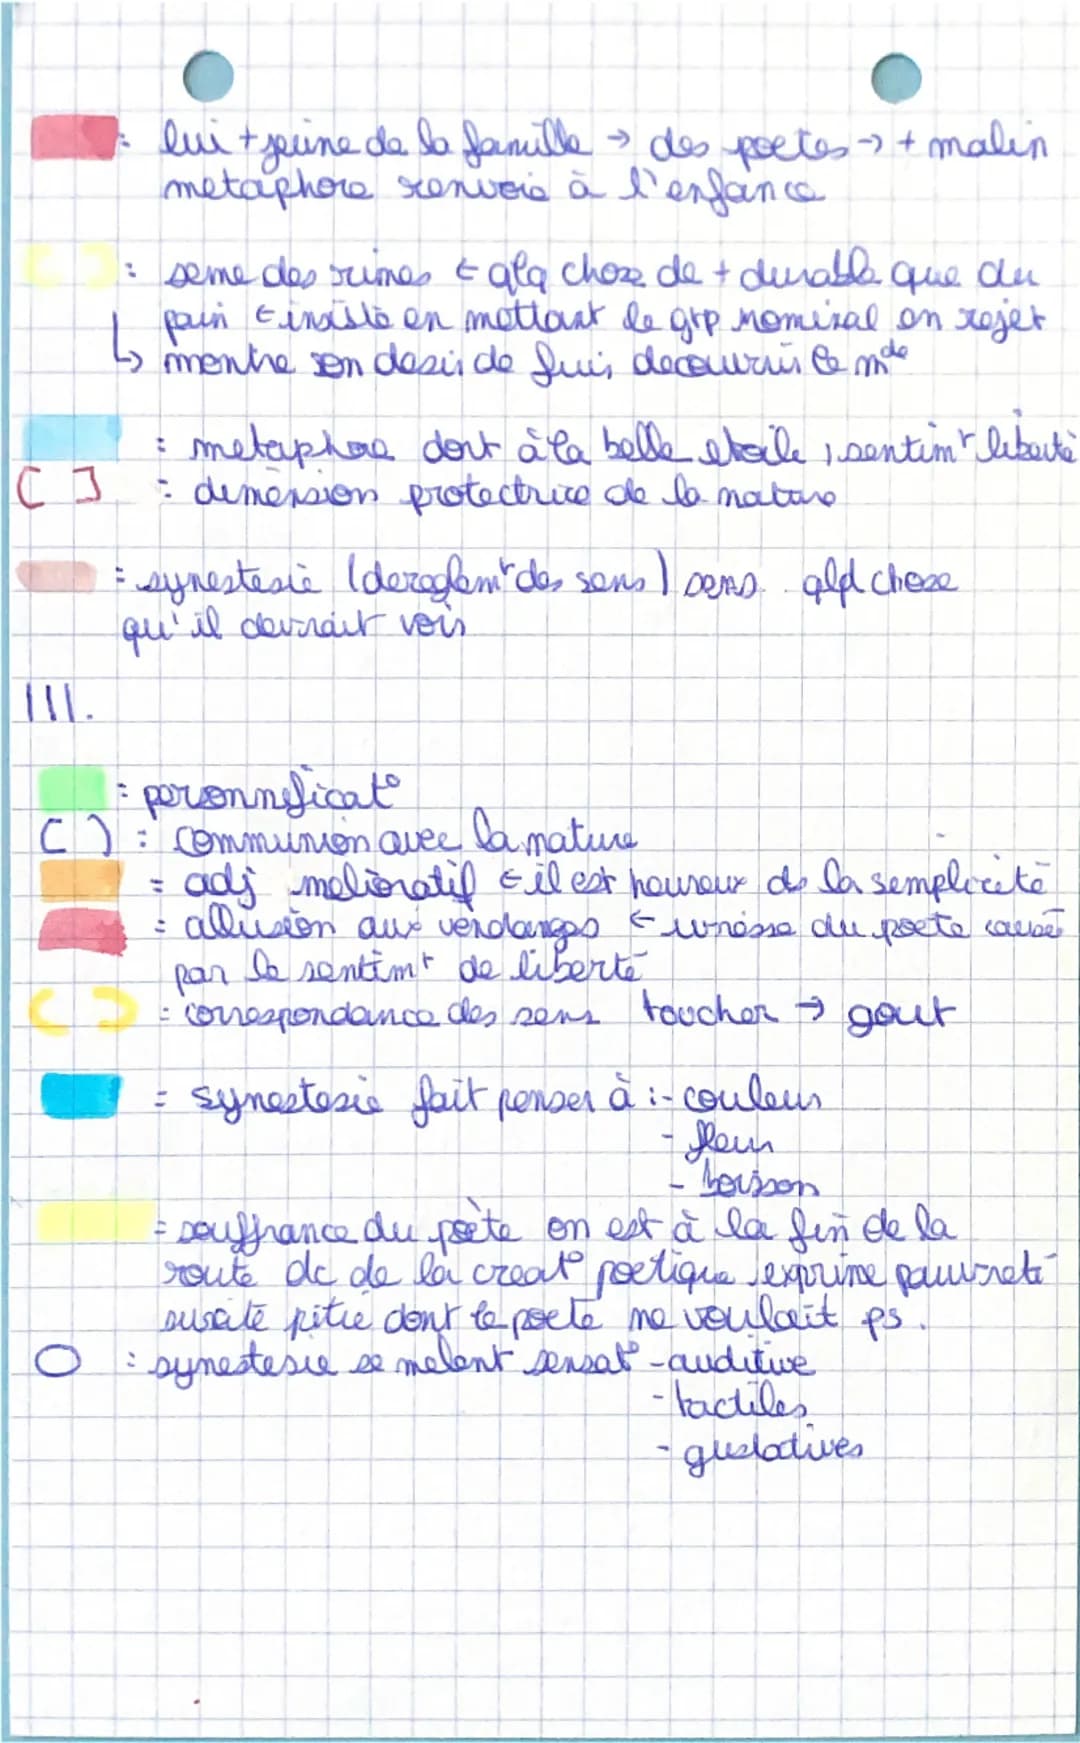 : lui + jeune de la famille → des poetes → + malin
metaphore renvoie à l'enfance
: seme des rimes ← qlq chose de + durable que du
pain ← insiste en mettant le grp nominal en rejet
↳ montre son desir de fuir, decouvrir le mde
: metaphore dort à la belle etoile, sentimt liberté
[ ] : dimension protectrice de la nature
: synestesie (dereglemt des sens) sens qlq chose
qu'il devrait voir
III.
: personnificato
( ) : communion avec la nature
= adj melioratif ← il est heureux de la semplicité
= allusion aux vendanges ← ivresse du poete causé
par le sentimt de liberté
( ) = correspondance des sens toucher → gout
= synestesie fait penser à : - couleur
- fleur
- boisson
= souffrance du poète on est à la fin de la
route dc de la creato poetique, exprime pauvreté
suscite pitie dont le poete ne voulait ps.
O : synestesie se melent sensato - auditive
- tactiles
- gustatives